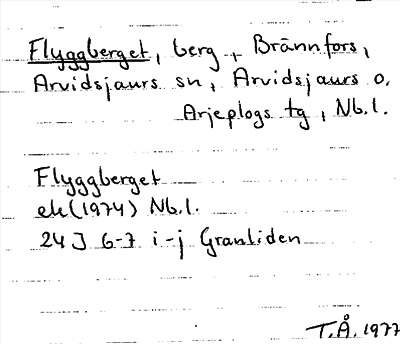 Flyggberget, berg, Brännfors,
Arvidsjaurs sn, Arvidsjaurs o.
Arjeplogs tg, Nb.l.
Flyggberget
ek (1974) Nb.l.
24J 6-7 i-j Granliden
T.Å. 1977